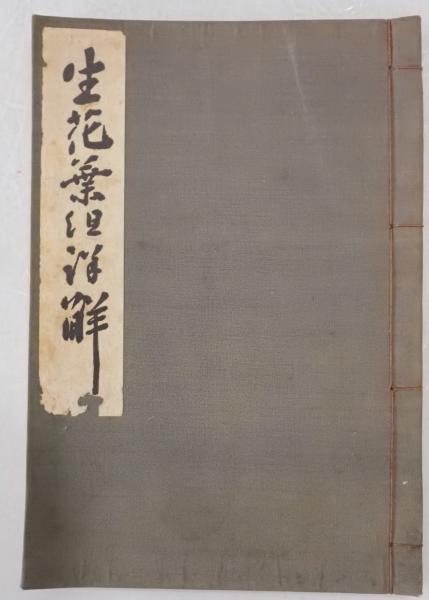 生花葉組詳解